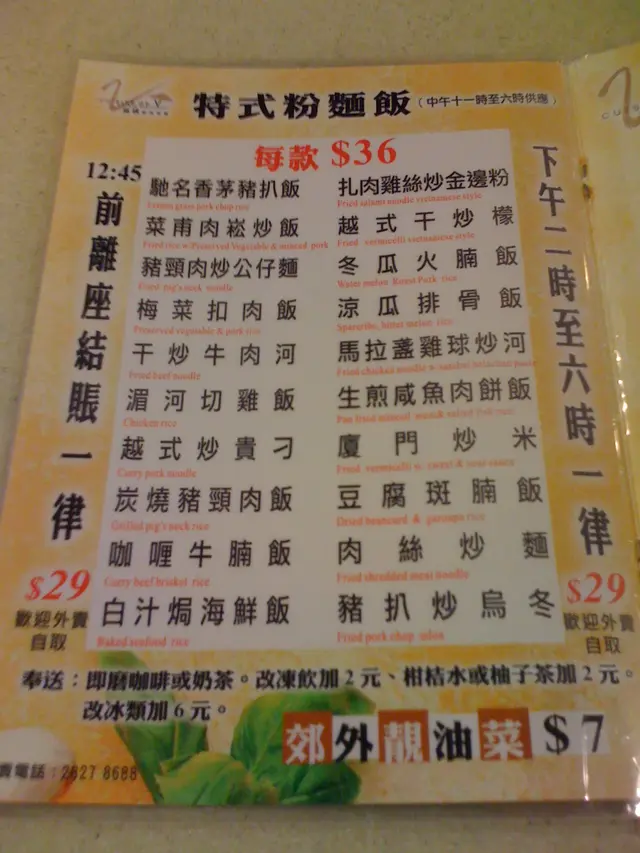 特式粉麵飯（中午十一時至六時供應）
每款 $36
12:45
前離座結賬一律
$29
歡迎外賣
自取
馳名香茅豬扒飯
Lemon grass pork chop rice
菜甫肉崧炒飯
Fried rice w/Preserved Vegetable & minced pork
豬頸肉炒公仔麵
Fried pig's neck noodle
梅菜扣肉飯
Preserved vegetable & pork rice
干炒牛肉河
Fried beef noodle
湄河切雞飯
Chicken rice
越式炒貴刁
Curry pork noodle
炭燒豬頸肉飯
Grilled pig's neck rice
咖喱牛腩飯
Curry beef brisket rice
白汁焗海鮮飯
Baked seafood rice
扎肉雞絲炒金邊粉
Fried salami noodle vietnamese style
越式干炒檬
Fried vermicelli vietnamese style
冬瓜火腩飯
Water melon Roast Pork rice
涼瓜排骨飯
Spareribs, bitter melon rice
馬拉盞雞球炒河
Fried chicken noodle
生煎咸魚肉餅飯
Pan fried minced
廈門炒米
Fried vermicelli w. sweet & sour sauce
豆腐斑腩飯
Dried beancurd & garoupa rice
肉絲炒麵
Fried shredded meat noodle
豬扒炒烏冬
Fried pork chop udon
下午二時至六時一律
$29
歡迎外賣
自取
奉送：即磨咖啡或奶茶。改凍飲加2元、柑桔水或柚子茶加2元。
改冰類加6元。
郊外靚油菜 $7
賣電話：2627 8688